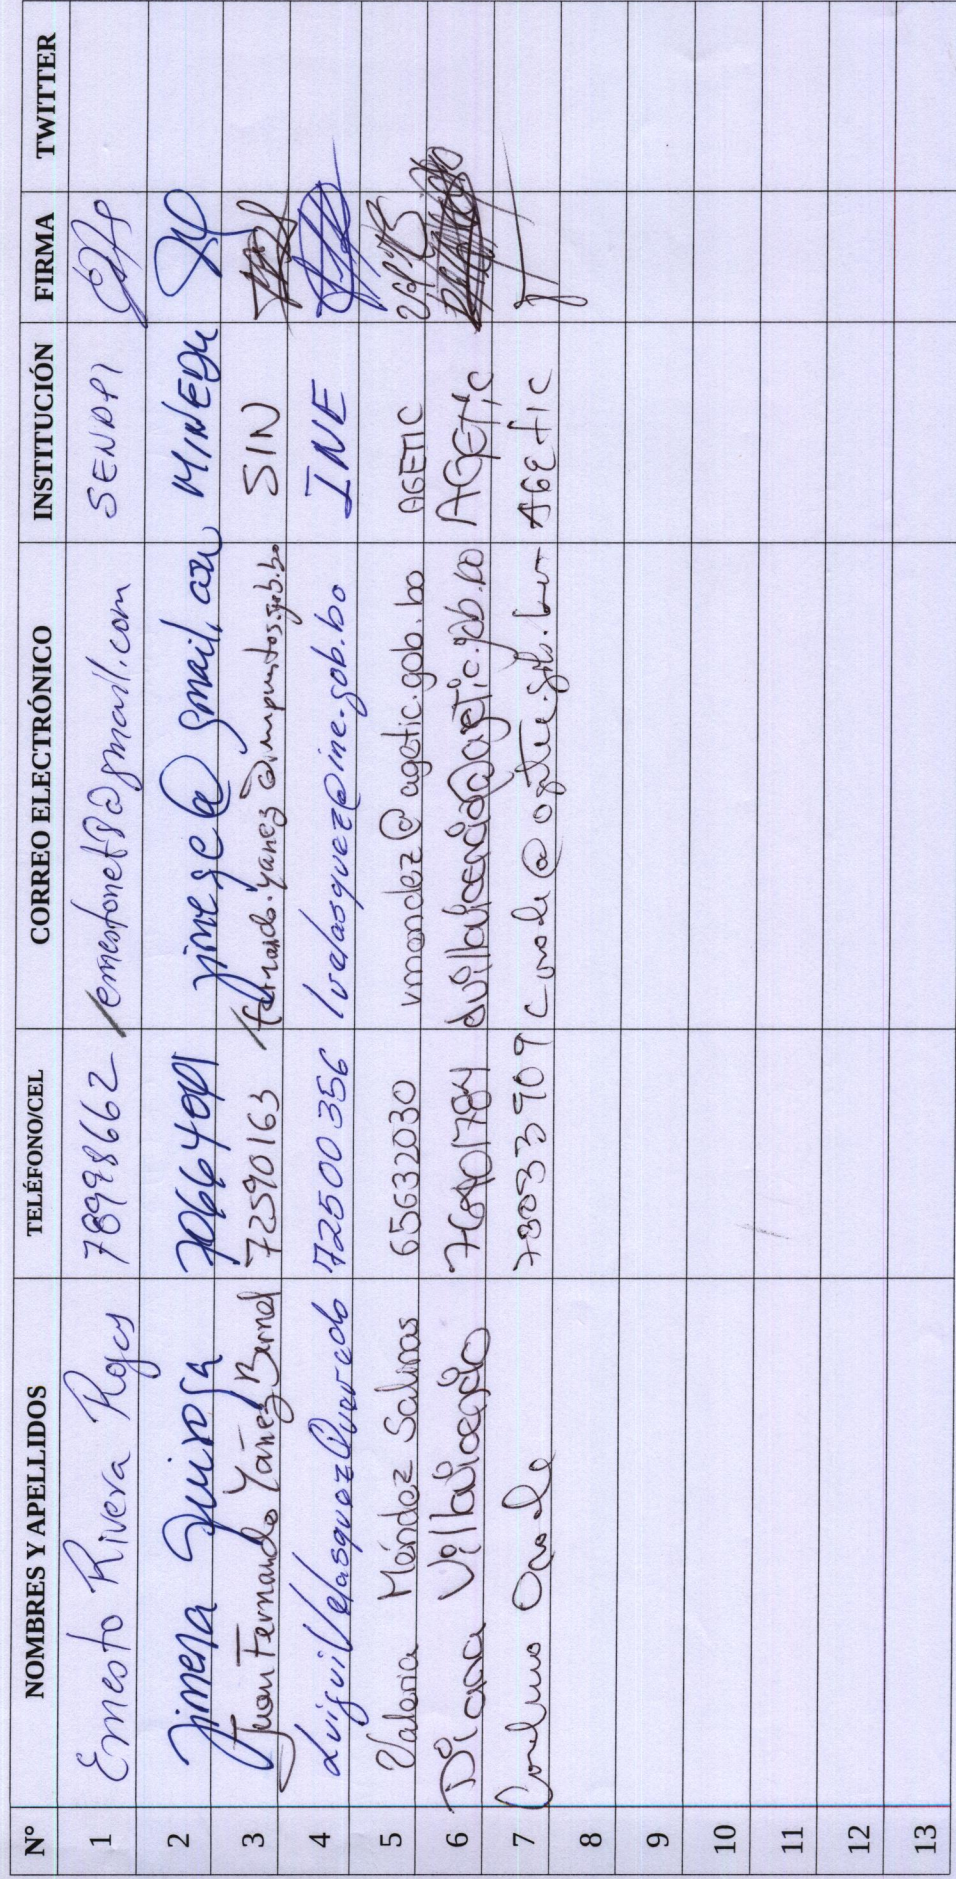 N° NOMBRES Y APELLIDOS TELÉFONO/CEL CORREO ELECTRÓNICO INSTITUCIÓN FIRMA TWITTER
1 Ernesto Rivera Rojas 78998662 SENAPI
2 Jimena Quiroga MINEDU
3 Juan Fernando Yañez Bernal 72590163 fernando.yanez@impuestos.gob.bo SIN
4 Luigui Velasquez Quevedo 72500356 lvelasquez@ine.gob.bo INE
5 Valeria Méndez Salinas 65632030 vmendez@agetic.gob.bo AGETIC
6 Diana Villavicencio dvillavicencio@agetic.gob.bo AGETIC
7 AGETIC
8
9
10
11
12
13